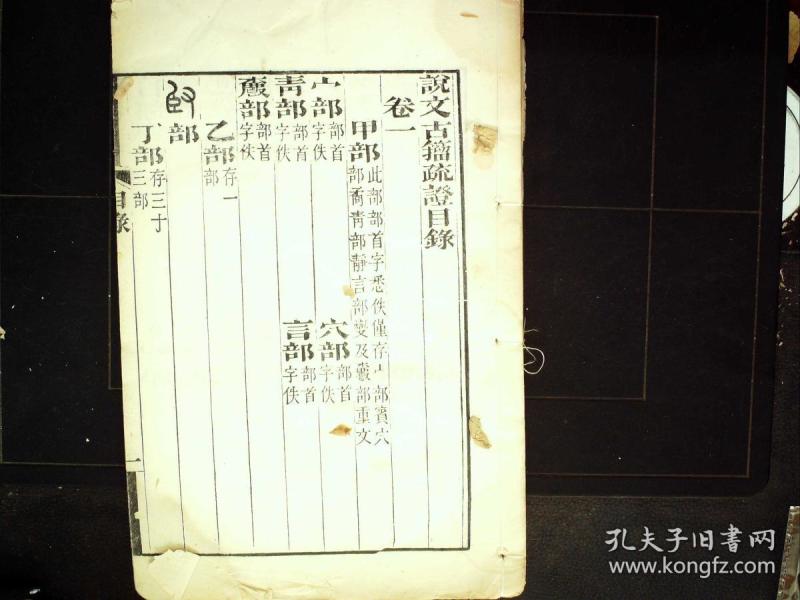 說文古籀疏證目錄
卷一
甲部 此部部首字悉佚僅存宀部賓穴
部 青部靜言部變及 部重文
宀部 部首字佚 穴部 部首字佚
青部 部首字佚 言部 部首字佚
部 部首字佚
乙部 存一部
部
丁部 存三十三部
目錄
一
孔夫子旧书网
www.kongfz.com